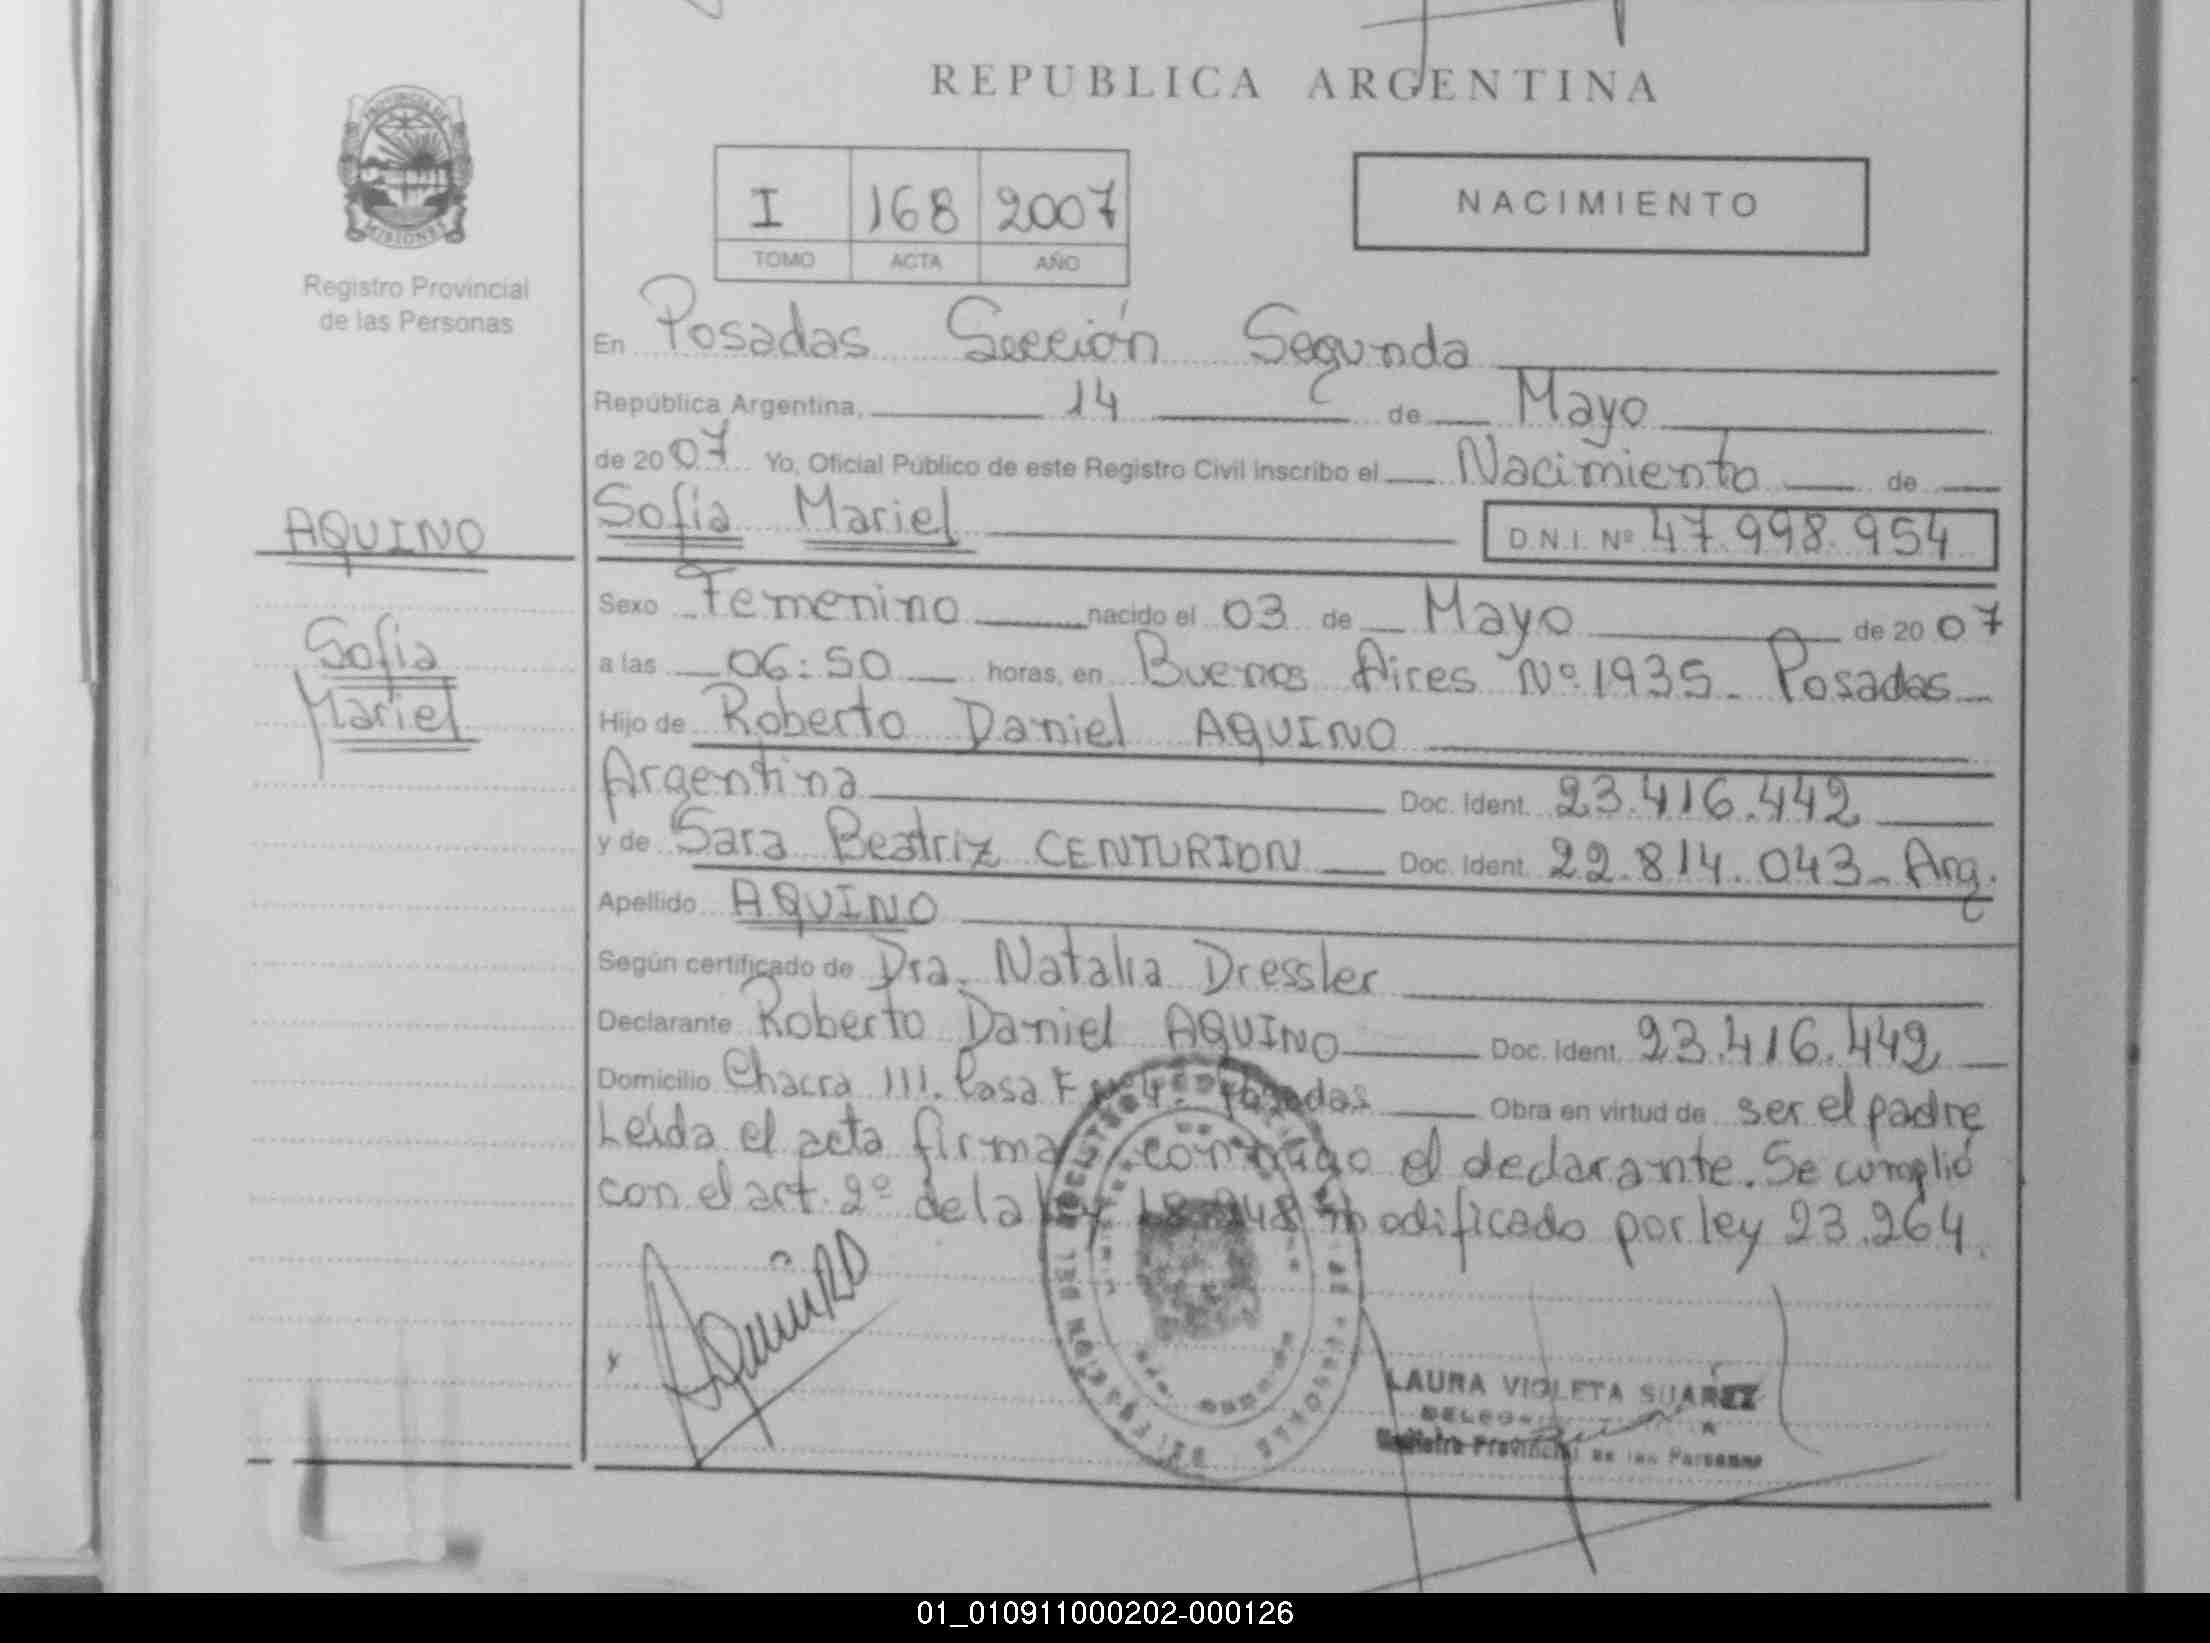 REPUBLICA ARGENTINA
PROVINCIA DE
MISIONES
Registro Provincial
de las Personas
I 168 2007
TOMO ACTA AÑO
NACIMIENTO
En Posadas Sección Segunda
República Argentina, 14 de Mayo
de 2007 Yo, Oficial Público de este Registro Civil inscribo el Nacimiento de
AQUINO
Sofia Mariel D.N.I. Nº 47.998.954
Sofia
Mariel
Sexo Femenino nacido el 03 de Mayo de 2007
a las 06:50 horas, en Buenos Aires Nº 1935- Posadas
Hijo de Roberto Daniel AQUINO
Argentina Doc. Ident. 23.416.442
y de Sara Beatriz CENTURION Doc. Ident. 22.814.043- Arg.
Apellido AQUINO
Según certificado de Dra. Natalia Dressler
Declarante Roberto Daniel AQUINO Doc. Ident. 23.416.442
Domicilio Chacra 111. Casa Posadas Obra en virtud de ser el padre
Leída el acta firma conmigo el declarante. Se cumplió
con el art. 2º de la ley 18.248 modificado por ley 23.264.
Aquino RD
LAURA VIOLETA SUAREZ
Registro Provincial de las Personas
01_010911000202-000126